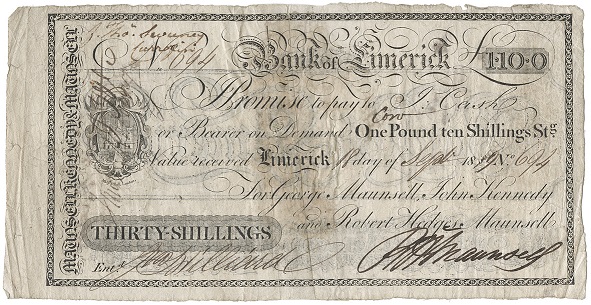 Thos. Sweeney
694
Bank of Limerick £1·10·0
I Promise to pay to J. Cash
or Bearer on Demand One Pound ten Shillings Stg.
Value received Limerick 18 day of Sept. 18 No. 694
For George Maunsell, John Kennedy
and Robert Hedges Maunsell
THIRTY-SHILLINGS
Entd. Hilliard
RHMaunsell
MAUNSELL KENNEDY & MAUNSELL